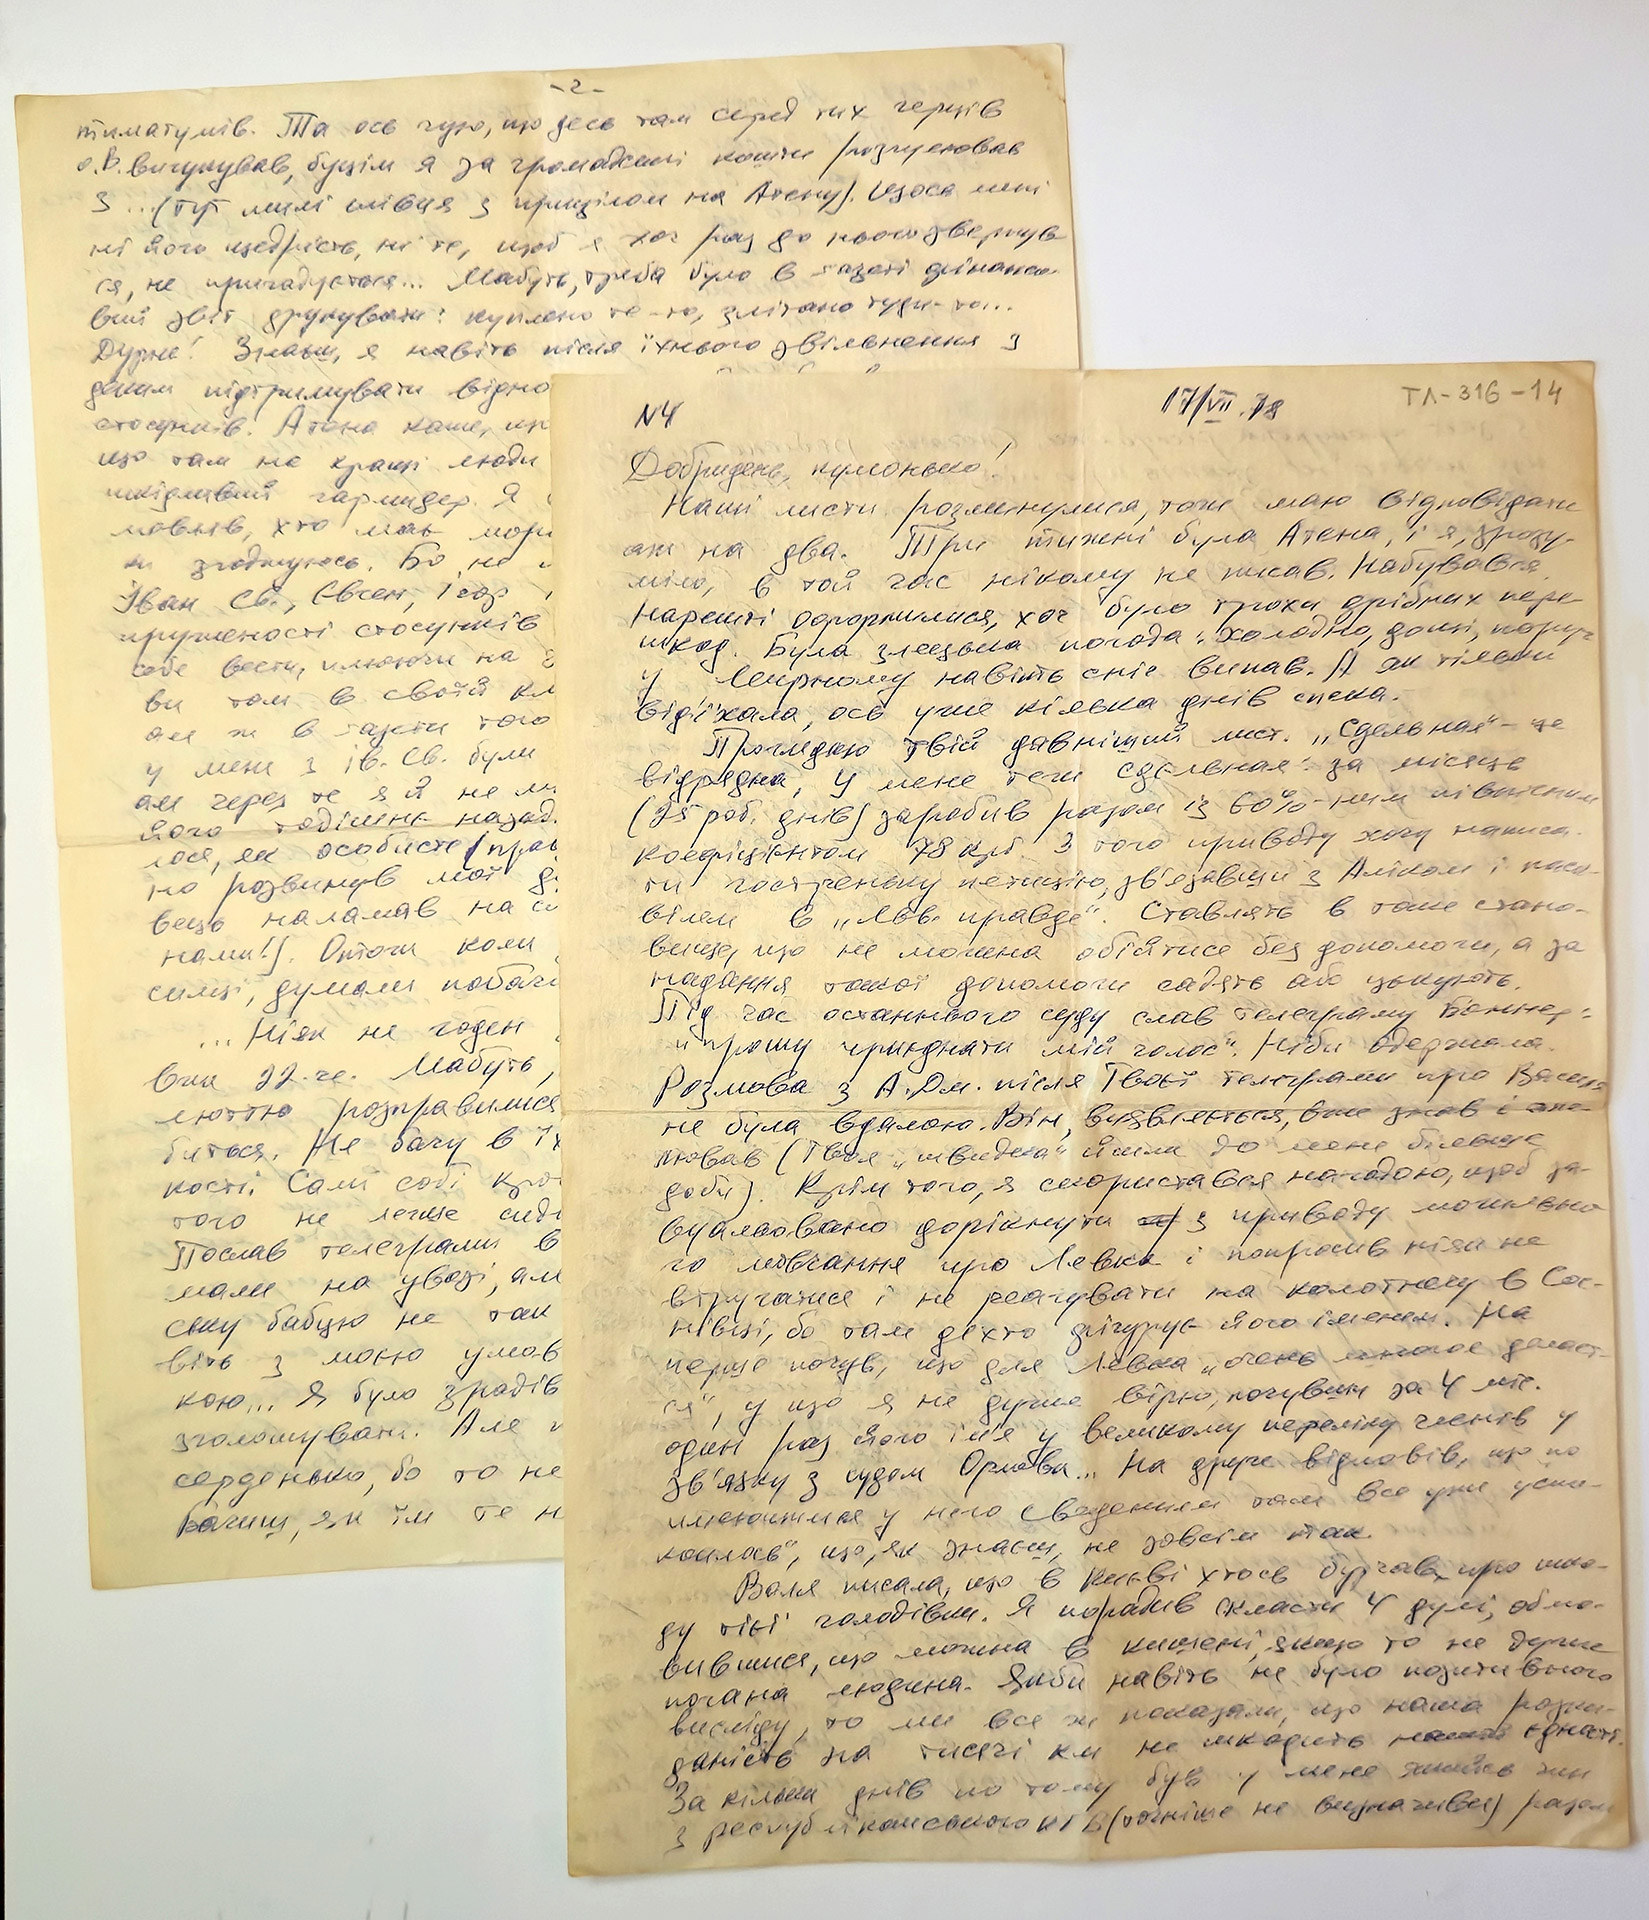 -2-
тиматумів. Та ось чую, що десь там серед тих герців
о.В. вигукував, буцім я за громадські кошти розкошував
з ... (тут милі слівця з прицілом на Атену). Щось мені
ні його щедрість, ні те, щоб я хоч раз до нього звернув-
ся, не пригадується... Мабуть, треба було в газеті фінансо-
вий звіт друкувати: куплено те-то, злітано туди-то...
Дурне! Знаєш, я навіть після їхнього звільнення з
деким підтримувати відно
стосунків. Атена каже, що
що там не кращі люди
шкідливий гармидер. Я
мовляв, хто має мора
не згоджуюсь. Бо не
Іван Св., Євген, Ігор
пруженості стосунків
себе вести, плюючи на
ви там в своїй кл
але ж в газети того
у мене з Ів. Св. були
але через те я й не
його тодішнє назад.
лося, як особисте (прав
но розвинув мої
вець наламав на
нами!). Отож коли
силці, думали побачи
...Ніяк не годен
вже 22-ге. Мабуть,
люттю розправилися
биться. Не бачу в їх
кості. Самі собі
того не легше сиді
Послав телеграми в
мали на увазі, але
ську бабцю не так
віть з моєю умов
кою... Я було зрадів
зголошувати. Але
серденько, бо то не
бачиш, як їм те н
N4
17/VII.78
ТЛ-316-14
Добридень, кумонько!
Наші листи розминулися, тож маю відповідати
аж на два. Три тижні була Атена, і я, зрозу-
міло, в той час нікому не писав. Набувався.
Нарешті оформилися, хоч було трохи дрібних пере-
шкод. Була злецька погода: холодно, дощі, поруч
у Мирному навіть сніг випав. А як тільки
від'їхала, ось уже кілька днів спека.
Проглядаю твій давніший лист. „Сдельная“ - це
відрядна, у мене теж сдєльная: за місяць
(25 роб. днів) заробив разом із 60%-ним північним
коефіцієнтом 78 крб. З того приводу хочу написа-
ти гостреньку петицію, зв'язавши з Аліком і паск-
вілем в „Льв. правде“. Ставлять в таке стано-
вище, що не можна обійтися без допомоги, а за
надання такої допомоги садять або цькують.
Під час останнього суду слав телеграму Боннер:
„прошу приєднати мій голос“. Ніби одержала.
Розмова з А.Дм. після Твоєї телеграми про Василя
не була вдалою. Він, виявляється, вже знав і
лював (Твоя „швидка“ йшла до мене більше
доби). Крім того, я скористався нагодою, щоб за-
вуальовано дорікнути з приводу могильно-
го мовчання про Левка і попросив ніяк не
втручатися і не реагувати на колотнечу в Сос-
нівці, бо там дехто фігурує його іменем. На
перше почув, що для Левка „очень многое делает-
ся“, у що я не дуже вірю, почувши за 4 міс.
один раз його ім'я у великому переліку членів у
зв'язку з судом Орлова... На друге відповів, що „по
имеющимся у него сведениям там все уже успо-
коилось“, що, як знаєш, не зовсім так.
Воля писала, що в Києві хтось бурчав про шко-
ду тієї голодівки. Я порадив скласти 4 дулі, обмо-
вившися, що можна в кишені, якщо то не дуже
погана людина. Якби навіть не було позитивного
висліду, то ми все ж показали, що наша розки-
даність на тисячі км не шкодить нашій єдності.
За кілька днів по тому був у мене якийсь чин
з республіканського КГБ (точніше не визначився) разом